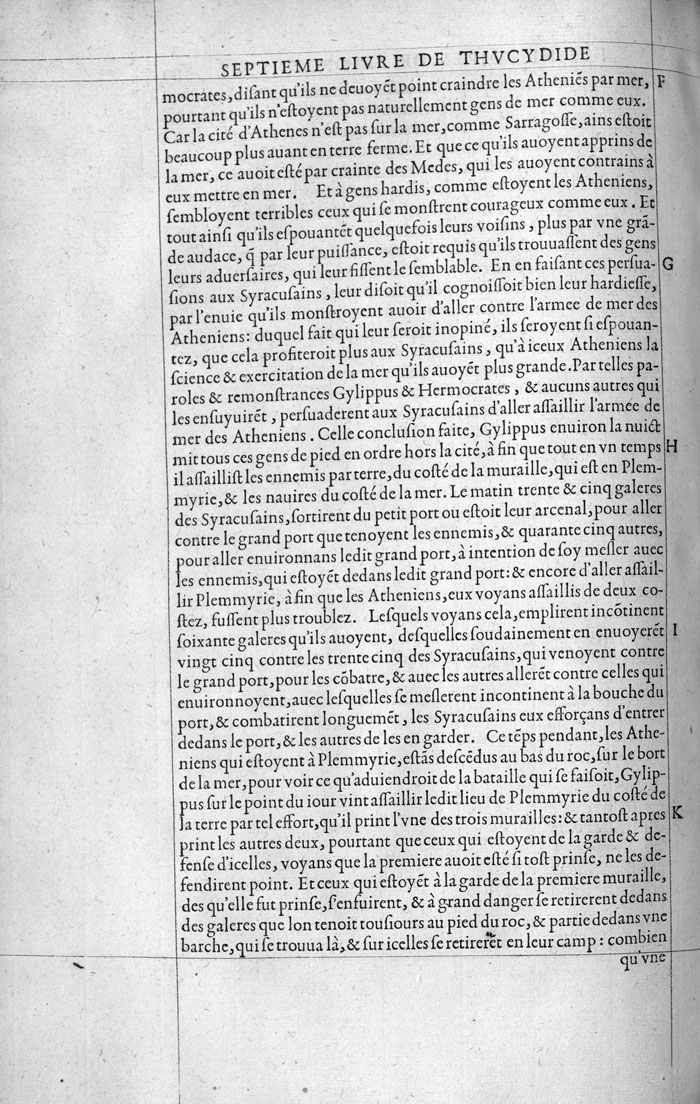 SEPTIEME LIVRE DE THVCYDIDE
mocrates, diſant qu'ils ne deuoyẽt point craindre les Atheniẽs par mer, F
pourtant qu'ils n'eſtoyent pas naturellement gens de mer comme eux.
Car la cité d'Athenes n'eſt pas ſur la mer, comme Sarragoſſe, ains eſtoit
beaucoup plus auant en terre ferme. Et que ce qu'ils auoyent apprins de
la mer, ce auoit eſté par crainte des Medes, qui les auoyent contrains à
eux mettre en mer. Et à gens hardis, comme eſtoyent les Atheniens,
ſembloyent terribles ceux qui ſe monſtrent courageux comme eux. Et
tout ainſi qu'ils eſpouantẽt quelquefois leurs voiſins, plus par vne grã-
de audace, q̃ par leur puiſſance, eſtoit requis qu'ils trouuaſſent des gens
leurs aduerſaires, qui leur fiſſent le ſemblable. En en faiſant ces perſua- G
ſions aux Syracuſains, leur diſoit qu'il cognoiſſoit bien leur hardieſſe,
par l'enuie qu'ils monſtroyent auoir d'aller contre l'armee de mer des
Atheniens: duquel fait qui leur ſeroit inopiné, ils ſeroyent ſi eſpouan-
tez, que cela profiteroit plus aux Syracuſains, qu'à iceux Atheniens la
ſcience & exercitation de la mer qu'ils auoyẽt plus grande. Par telles pa-
roles & remonſtrances Gylippus & Hermocrates, & aucuns autres qui
les enſuyuirẽt, perſuaderent aux Syracuſains d'aller aſſaillir l'armee de
mer des Atheniens. Celle concluſion faite, Gylippus enuiron la nuict
mit tous ces gens de pied en ordre hors la cité, à fin que tout en vn temps H
il aſſailliſt les ennemis par terre, du coſté de la muraille, qui eſt en Plem-
myrie, & les nauires du coſté de la mer. Le matin trente & cinq galeres
des Syracuſains, ſortirent du petit port ou eſtoit leur arcenal, pour aller
contre le grand port que tenoyent les ennemis, & quarante cinq autres,
pour aller enuironnans ledit grand port, à intention de ſoy meſler auec
les ennemis, qui eſtoyẽt dedans ledit grand port: & encore d'aller aſſail-
lir Plemmyrie, à fin que les Atheniens, eux voyans aſſaillis de deux co-
ſtez, fuſſent plus troublez. Leſquels voyans cela, emplirent incõtinent
ſoixante galeres qu'ils auoyent, deſquelles ſoudainement en enuoyerẽt I
vingt cinq contre les trente cinq des Syracuſains, qui venoyent contre
le grand port, pour les cõbatre, & auec les autres allerẽt contre celles qui
enuironnoyent, auec leſquelles ſe meſlerent incontinent à la bouche du
port, & combatirent longuemẽt, les Syracuſains eux efforçans d'entrer
dedans le port, & les autres de les en garder. Ce tẽps pendant, les Athe-
niens qui eſtoyent à Plemmyrie, eſtãs deſcẽdus au bas du roc, ſur le bort
de la mer, pour voir ce qu'aduiendroit de la bataille qui ſe faiſoit, Gylip-
pus ſur le point du iour vint aſſaillir ledit lieu de Plemmyrie du coſté de
la terre par tel effort, qu'il print l'vne des trois murailles: & tantoſt apres K
print les autres deux, pourtant que ceux qui eſtoyent de la garde & de-
fenſe d'icelles, voyans que la premiere auoit eſté ſi toſt prinſe, ne les de-
fendirent point. Et ceux qui eſtoyẽt à la garde de la premiere muraille,
des qu'elle fut prinſe, ſ'enfuirent, & à grand danger ſe retirerent dedans
des galeres que lon tenoit touſiours au pied du roc, & partie dedans vne
barche, qui ſe trouua là, & ſur icelles ſe retirerẽt en leur camp: combien
qu'vne